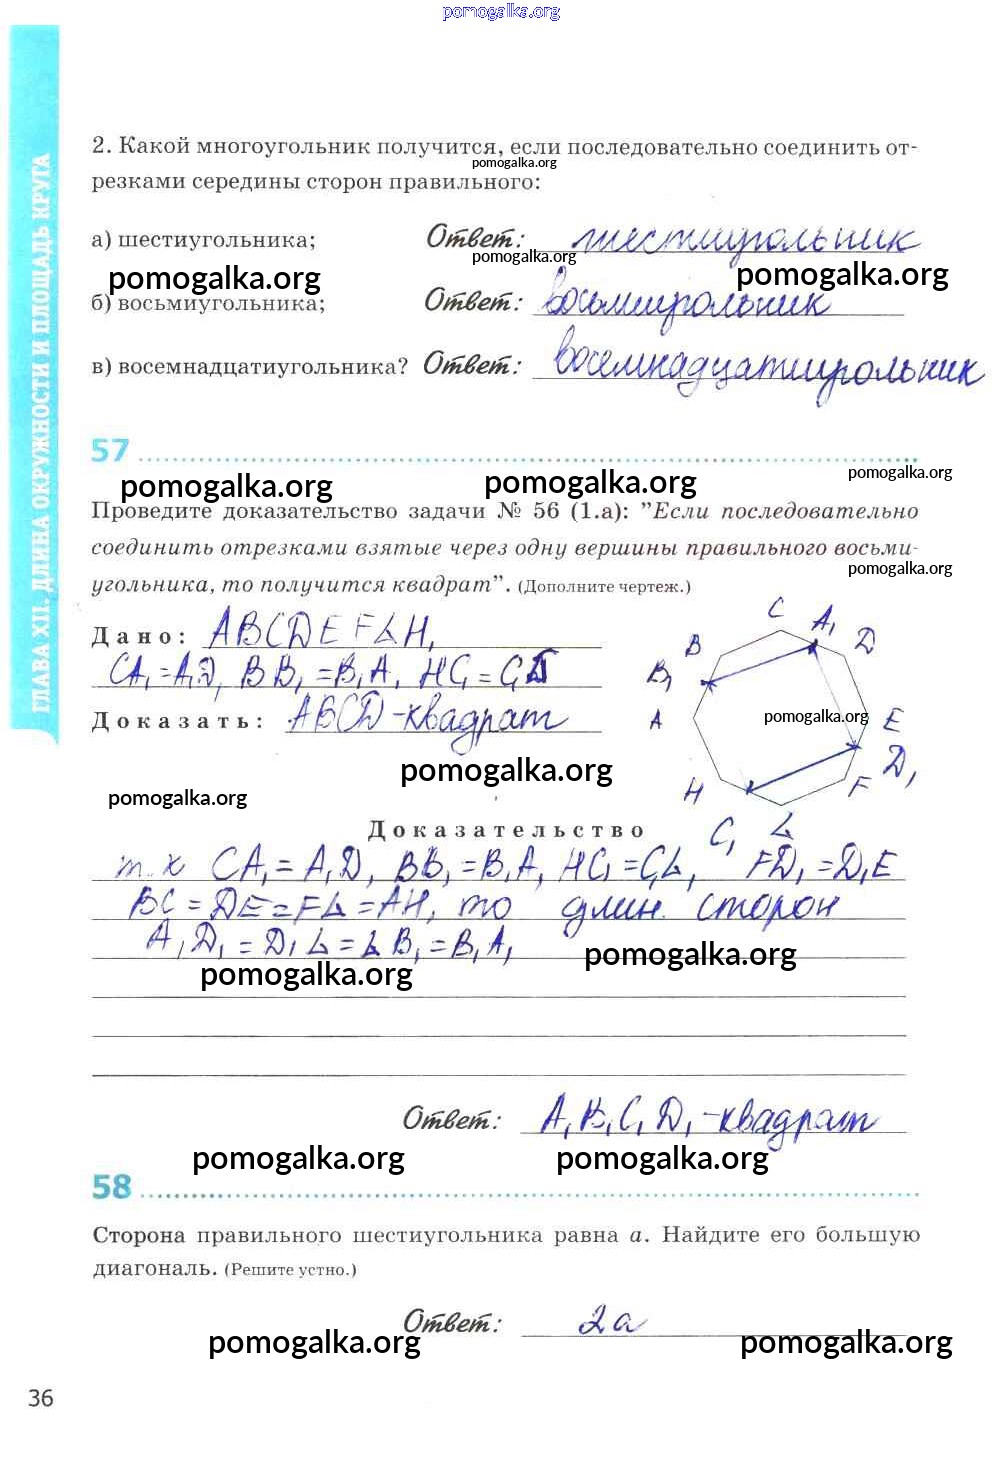 pomogalka.org
ГЛАВА XII. ДЛИНА ОКРУЖНОСТИ И ПЛОЩАДЬ КРУГА
2. Какой многоугольник получится, если последовательно соединить от-
pomogalka.org
резками середины сторон правильного:
а) шестиугольника; Ответ: шестиугольник
pomogalka.org
pomogalka.org pomogalka.org
б) восьмиугольника; Ответ: восьмиугольник
в) восемнадцатиугольника? Ответ: восемнадцатиугольник
57
pomogalka.org
pomogalka.org pomogalka.org
Проведите доказательство задачи № 56 (1.а): "Если последовательно
соединить отрезками взятые через одну вершины правильного восьми-
pomogalka.org
угольника, то получится квадрат". (Дополните чертеж.)
Дано: ABCDEF H,
CA₁=A₁D, BB₁=B₁A, HC₁=C₁
Доказать: ABCD-квадрат
C A₁ D
B
B₁
A
pomogalka.org
E
D₁
H F
C₁
pomogalka.org
pomogalka.org
Доказательство
т.к CA₁=A₁D, BB₁=B₁A, HC₁=C₁L, FD₁=D₁E
BC=DE=FL=AH, то длин. сторон
A₁D₁=D₁L=LB₁=B₁A₁
pomogalka.org
pomogalka.org
Ответ: A₁B₁C₁D₁-квадрат
pomogalka.org pomogalka.org
58
Сторона правильного шестиугольника равна a. Найдите его большую
диагональ. (Решите устно.)
Ответ: 2a
pomogalka.org pomogalka.org
36